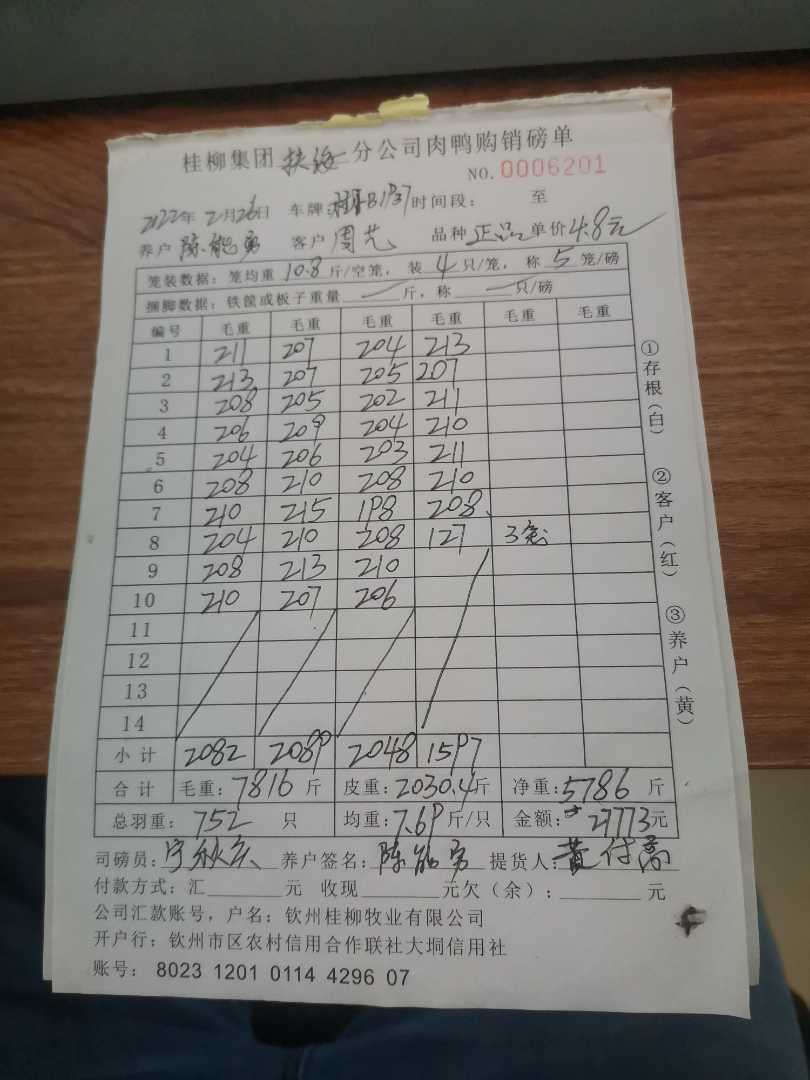 桂柳集团 扶海 分公司肉鸭购销磅单
NO.0006201
2022年 2月26日 车牌: 时间段: 至
养户 陈能勇 客户 周艺 品种 正品 单价 4.8元
笼装数据: 笼均重 10.8 斤/空笼, 装 4 只/笼, 称 5 笼/磅
捆脚数据: 铁筐或板子重量 — 斤, 称 — 只/磅
编号 毛重 毛重 毛重 毛重 毛重 毛重
1 211 207 204 213
2 213 207 205 207
3 208 205 202 211
4 206 209 204 210
5 204 206 203 211
6 208 210 208 210
7 210 215 198 208
8 204 210 208 127 3笼
9 208 213 210
10 210 207 206
11
12
13
14
小计 2082 2089 2048 1597
合计 毛重: 7816 斤 皮重: 2030.4 斤 净重: 5786 斤
总羽重: 752 只 均重: 7.69 斤/只 金额: 27773元
司磅员: 宁秋云 养户签名: 陈能勇 提货人: 黄付高
付款方式: 汇 元 收现 元欠(余): 元
公司汇款账号, 户名: 钦州桂柳牧业有限公司
开户行: 钦州市区农村信用合作联社大垌信用社
账号: 8023 1201 0114 4296 07
①存根(白)
②客户(红)
③养户(黄)